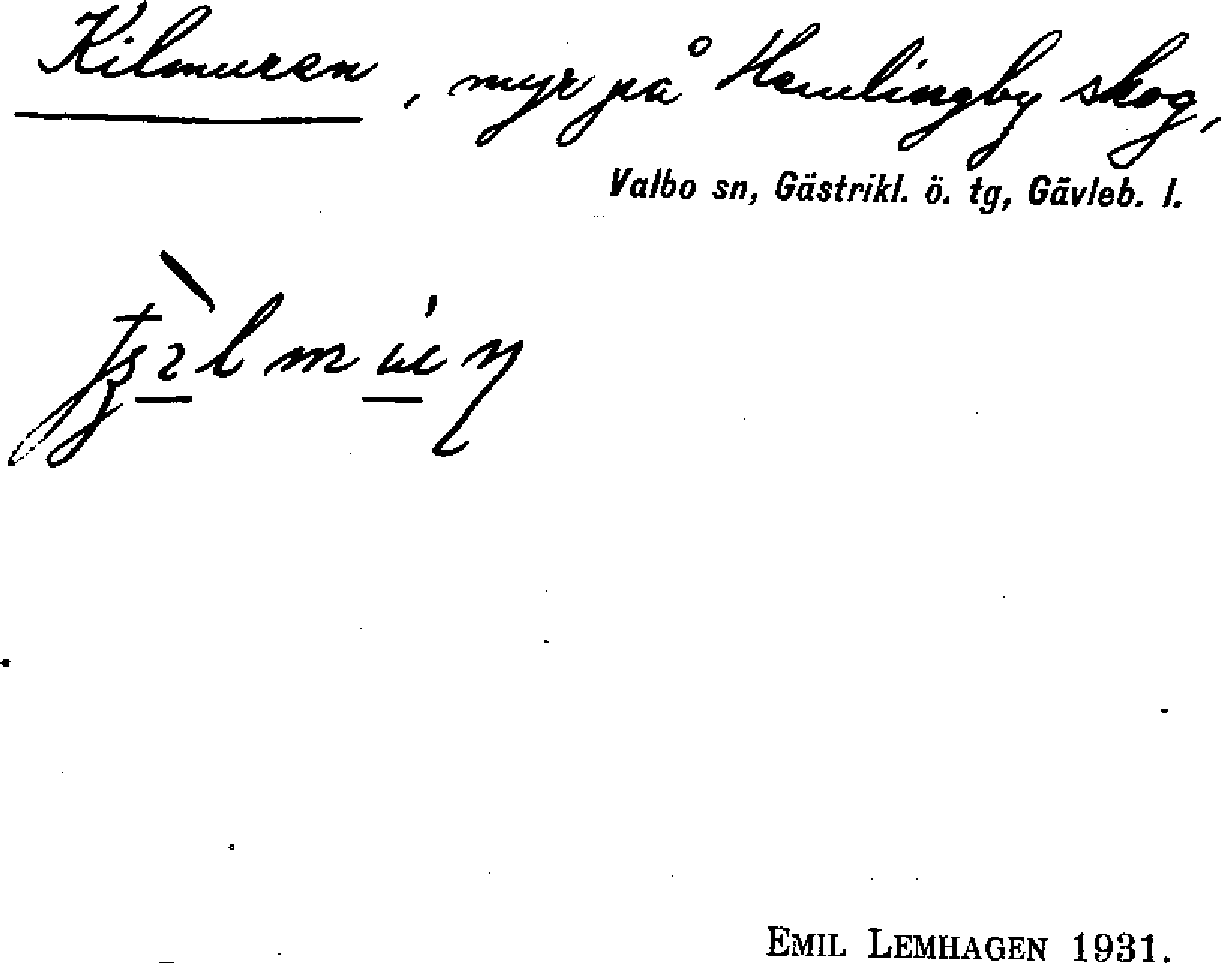 Kilmuren, myr på Hemlingby skog,
Valbo sn, Gästrikl. ö. tg, Gävleb. l.
EMIL LEMHAGEN 1931.